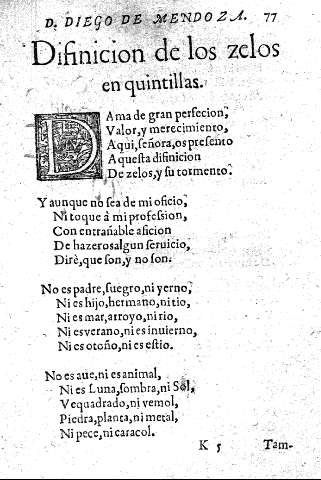 D. DIEGO DE MENDOZA. 77
Difinicion de los zelos
en quintillas.
DAma de gran perfecion,
Valor, y merecimiento,
Aqui, señora, os presento
Aquesta difinicion
De zelos, y su tormento.
Y aunque no sea de mi oficio,
Ni toque à mi profession,
Con entrañable aficion
De hazeros algun seruicio,
Dirè, que son, y no son.
No es padre, suegro, ni yerno,
Ni es hijo, hermano, ni tio,
Ni es mar, arroyo, ni rio,
Ni es verano, ni es inuierno,
Ni es otoño, ni es estio.
No es aue, ni es animal,
Ni es Luna, sombra, ni Sol,
Vequadrado, ni vemol,
Piedra, planta, ni metal,
Ni pece, ni caracol.
K 5 Tam-